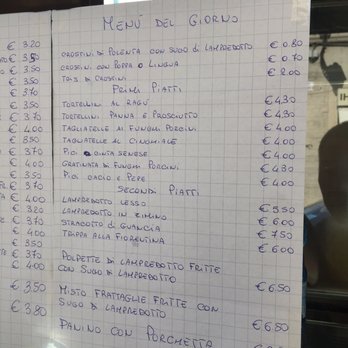 MENÙ DEL GIORNO
CROSTINI DI POLENTA CON SUGO DI LAMPREDOTTO € 0.80
CROSTINI CON POPPA O LINGUA € 0.70
TRIS DI CROSTINI € 2.00
PRIMI PIATTI
TORTELLINI AL RAGÙ € 4.30
TORTELLINI PANNA E PROSCIUTTO € 4.30
TAGLIATELLE AI FUNGHI PORCINI € 4.00
TAGLIATELLE AL CINGHIALE € 4.00
PICI CINTA SENESE € 4.00
GRATINATA DI FUNGHI PORCINI € 4.30
PICI CACIO E PEPE € 4.00
SECONDI PIATTI
LAMPREDOTTO LESSO € 5.50
LAMPREDOTTO IN ZIMINO € 6.00
STRACOTTO DI GUANCIA € 7.50
TRIPPA ALLA FIORENTINA € 6.00
POLPETTE DI LAMPREDOTTO FRITTE
CON SUGO DI LAMPREDOTTO € 6.50
MISTO FRATTAGLIE FRITTE CON
SUGO DI LAMPREDOTTO € 6.50
PANINO CON PORCHETTA
€ 3.20
€ 3.50
€ 3.50
€ 3.50
€ 3.70
€ 3.50
€ 3.70
€ 4.00
€ 3.50
€ 3.70
€ 4.00
€ 3.50
€ 3.70
€ 4.00
€ 3.20
€ 3.70
€ 4.00
€ 3.50
€ 3.70
€ 4.00
€ 3.50
€ 3.80